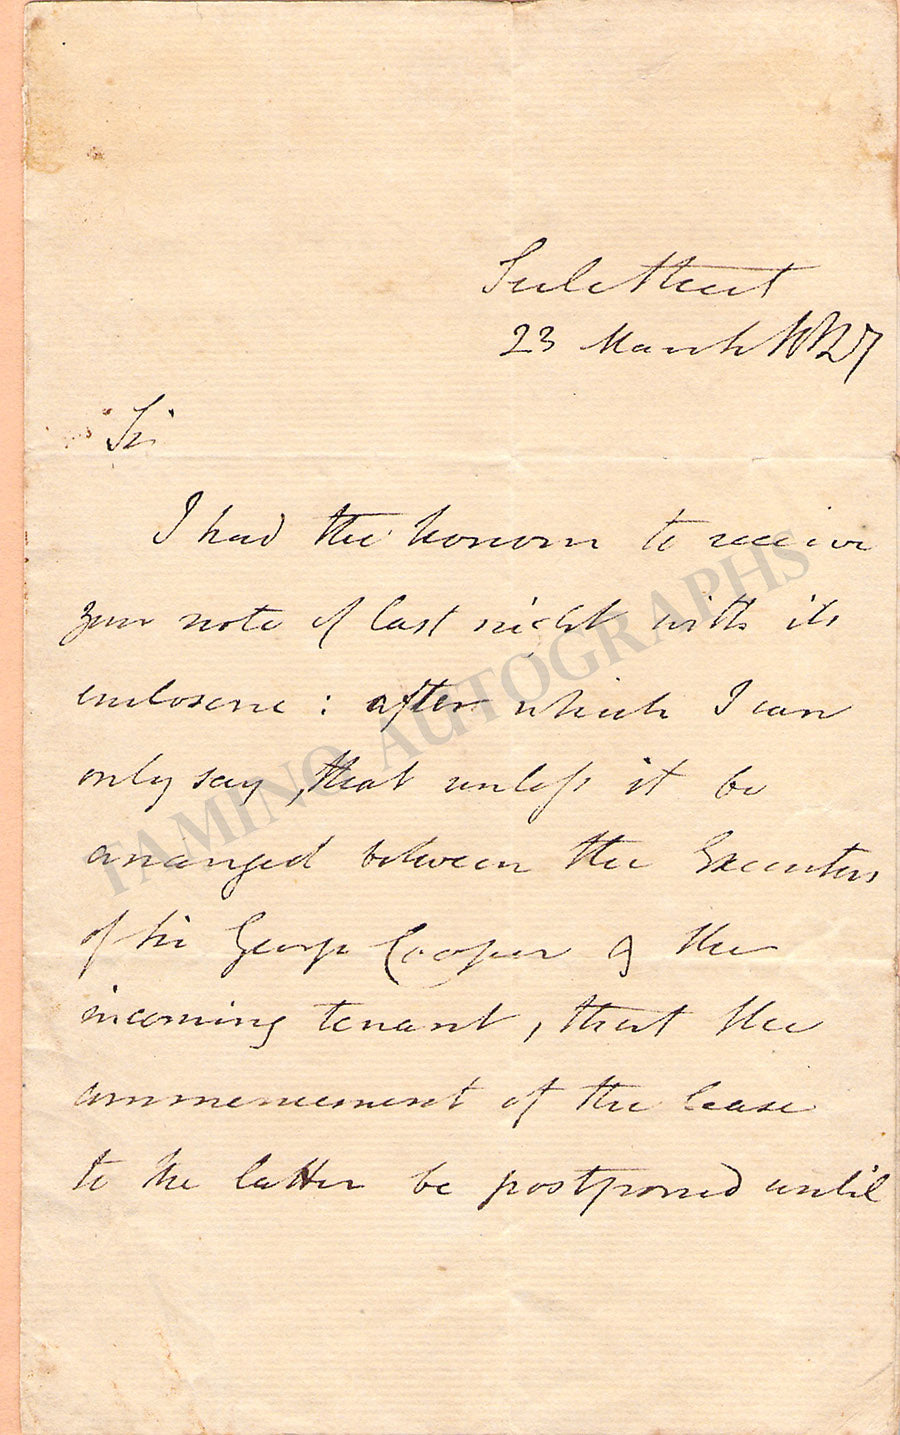 Sule Street
23 March 1827
Sir
I had the honour to receive
your note of last night with its
enclosure : after which I can
only say, that unless it be
arranged between the Executors
of Sir George Cooper & the
incoming tenant, that the
commencement of the lease
to the latter be postponed until
TAMINO AUTOGRAPHS